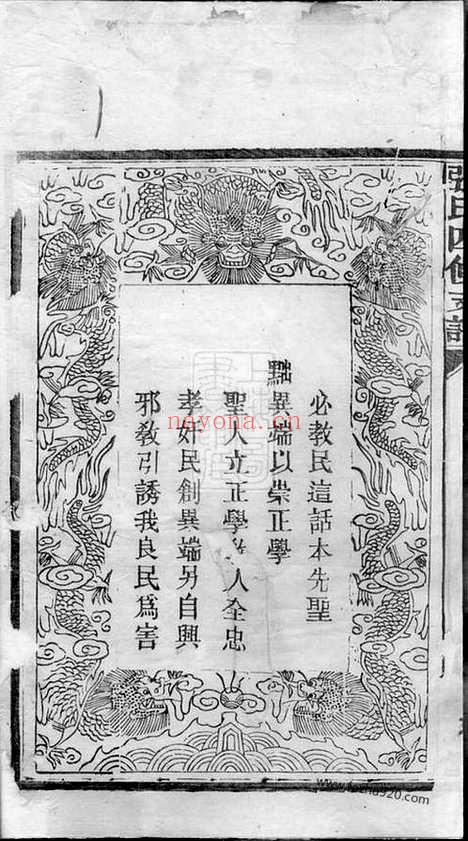 必教民這話本先聖
黜異端以崇正學
聖人立正學教人全忠
孝奸民創異端另自興
邪教引誘我良民爲害
張氏四修支譜
nayona.cn
www.jiapu920.com